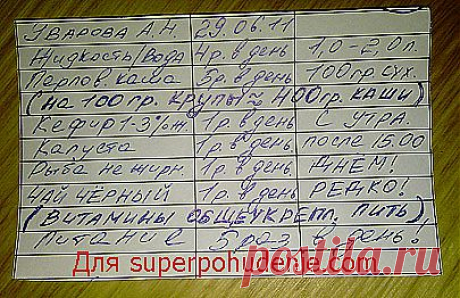 Уварова А.Н. 29.06.11
Жидкость/вода 4р. в день 1,0-2,0л.
Перлов. каша 5р. в день 100гр. сух.
(на 100гр. крупы ≈ 400гр. каши)
Кефир 1-3%ж. 1р. в день с утра.
Капуста 1р. в день после 15.00
Рыба не жирн. 1р. в день днём!
Чай чёрный 1р. в день редко!
(Витамины общеукрепл. пить),
Питание 5 раз в день!
Для superpohudenie.com